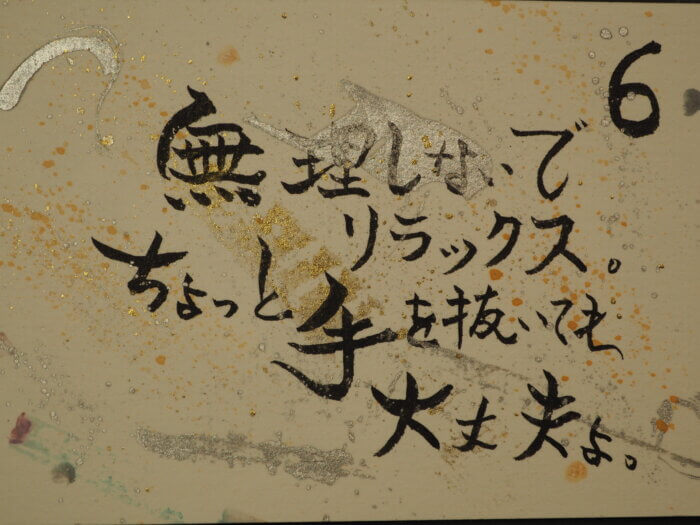 6
無理しないで
リラックス。
ちょっと手を抜いても
大丈夫よ。